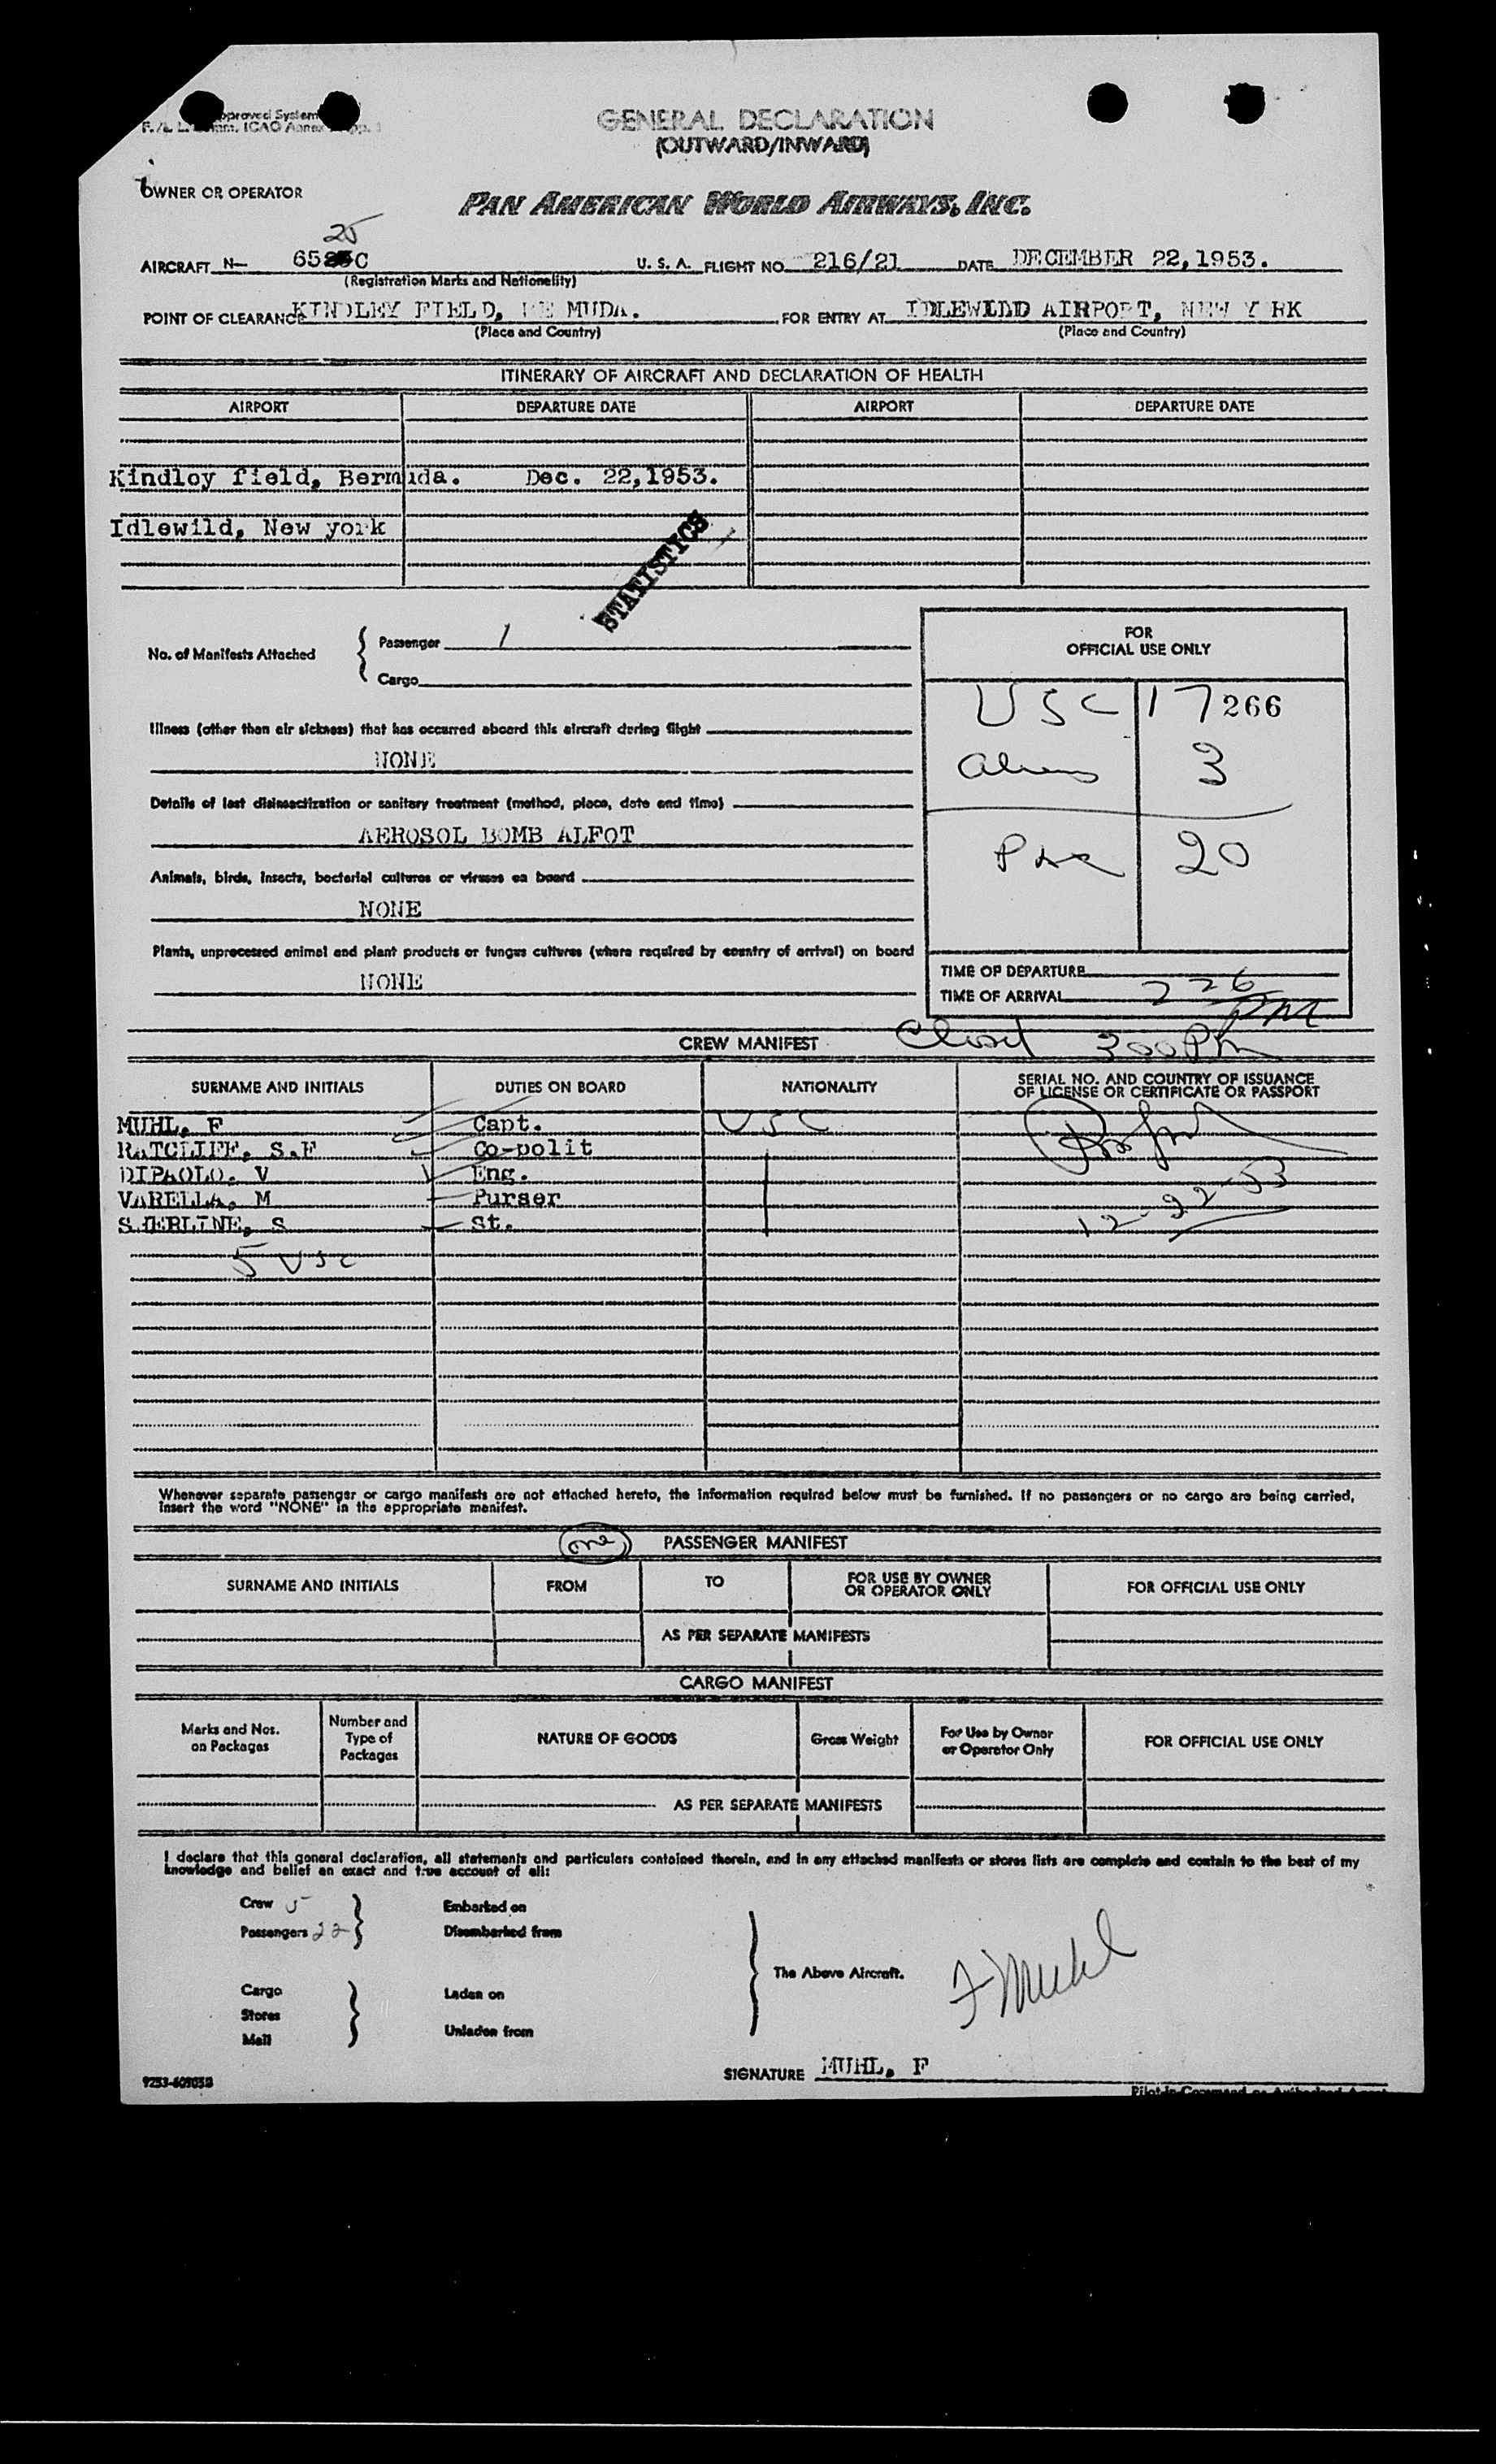 GENERAL DECLARATION
(OUTWARD/INWARD)
OWNER OR OPERATOR
PAN AMERICAN WORLD AIRWAYS, INC.
25
AIRCRAFT N- 65 C U. S. A. FLIGHT NO. 216/21 DATE DECEMBER 22,1953.
(Registration Marks and Nationality)
POINT OF CLEARANCE KINDLEY FIELD, BE MUDA. FOR ENTRY AT IDLEWILD AIRPORT, NEW Y RK
(Place and Country) (Place and Country)
ITINERARY OF AIRCRAFT AND DECLARATION OF HEALTH
AIRPORT DEPARTURE DATE AIRPORT DEPARTURE DATE
Kindley field, Bermuda. Dec. 22,1953.
Idlewild, New york
STATISTICS
No. of Manifests Attached
Passenger 1
Cargo
FOR
OFFICIAL USE ONLY
USC 17 266
Aliens 3
Pax 20
Illness (other than air sickness) that has occurred aboard this aircraft during flight
NONE
Details of last disinsectization or sanitary treatment (method, place, date and time)
AEROSOL BOMB ALFOT
Animals, birds, insects, bacterial cultures or viruses on board
NONE
Plants, unprocessed animal and plant products or fungus cultures (where required by country of arrival) on board
NONE
TIME OF DEPARTURE
TIME OF ARRIVAL 226 PM
CREW MANIFEST Closed 300 Pm
SURNAME AND INITIALS DUTIES ON BOARD NATIONALITY SERIAL NO. AND COUNTRY OF ISSUANCE
OF LICENSE OR CERTIFICATE OR PASSPORT
MUHL, F Capt. USC
RATCLIFF, S.F Co-polit
DIPAOLO, V Eng.
VARELLA, M Purser
S St. 12-22-53
5 USC
Whenever separate passenger or cargo manifests are not attached hereto, the information required below must be furnished. If no passengers or no cargo are being carried,
insert the word "NONE" in the appropriate manifest.
one PASSENGER MANIFEST
SURNAME AND INITIALS FROM TO FOR USE BY OWNER
OR OPERATOR ONLY FOR OFFICIAL USE ONLY
AS PER SEPARATE MANIFESTS
CARGO MANIFEST
Marks and Nos.
on Packages
Number and
Type of
Packages
NATURE OF GOODS
Gross Weight
For Use by Owner
or Operator Only
FOR OFFICIAL USE ONLY
AS PER SEPARATE MANIFESTS
I declare that this general declaration, all statements and particulars contained therein, and in any attached manifests or stores lists are complete and contain to the best of my
knowledge and belief an exact and true account of all:
Crew 5 Embarked on
Passengers 22 Disembarked from
The Above Aircraft.
F Muhl
Cargo Laden on
Stores
Mail Unladen from
SIGNATURE MUHL, F